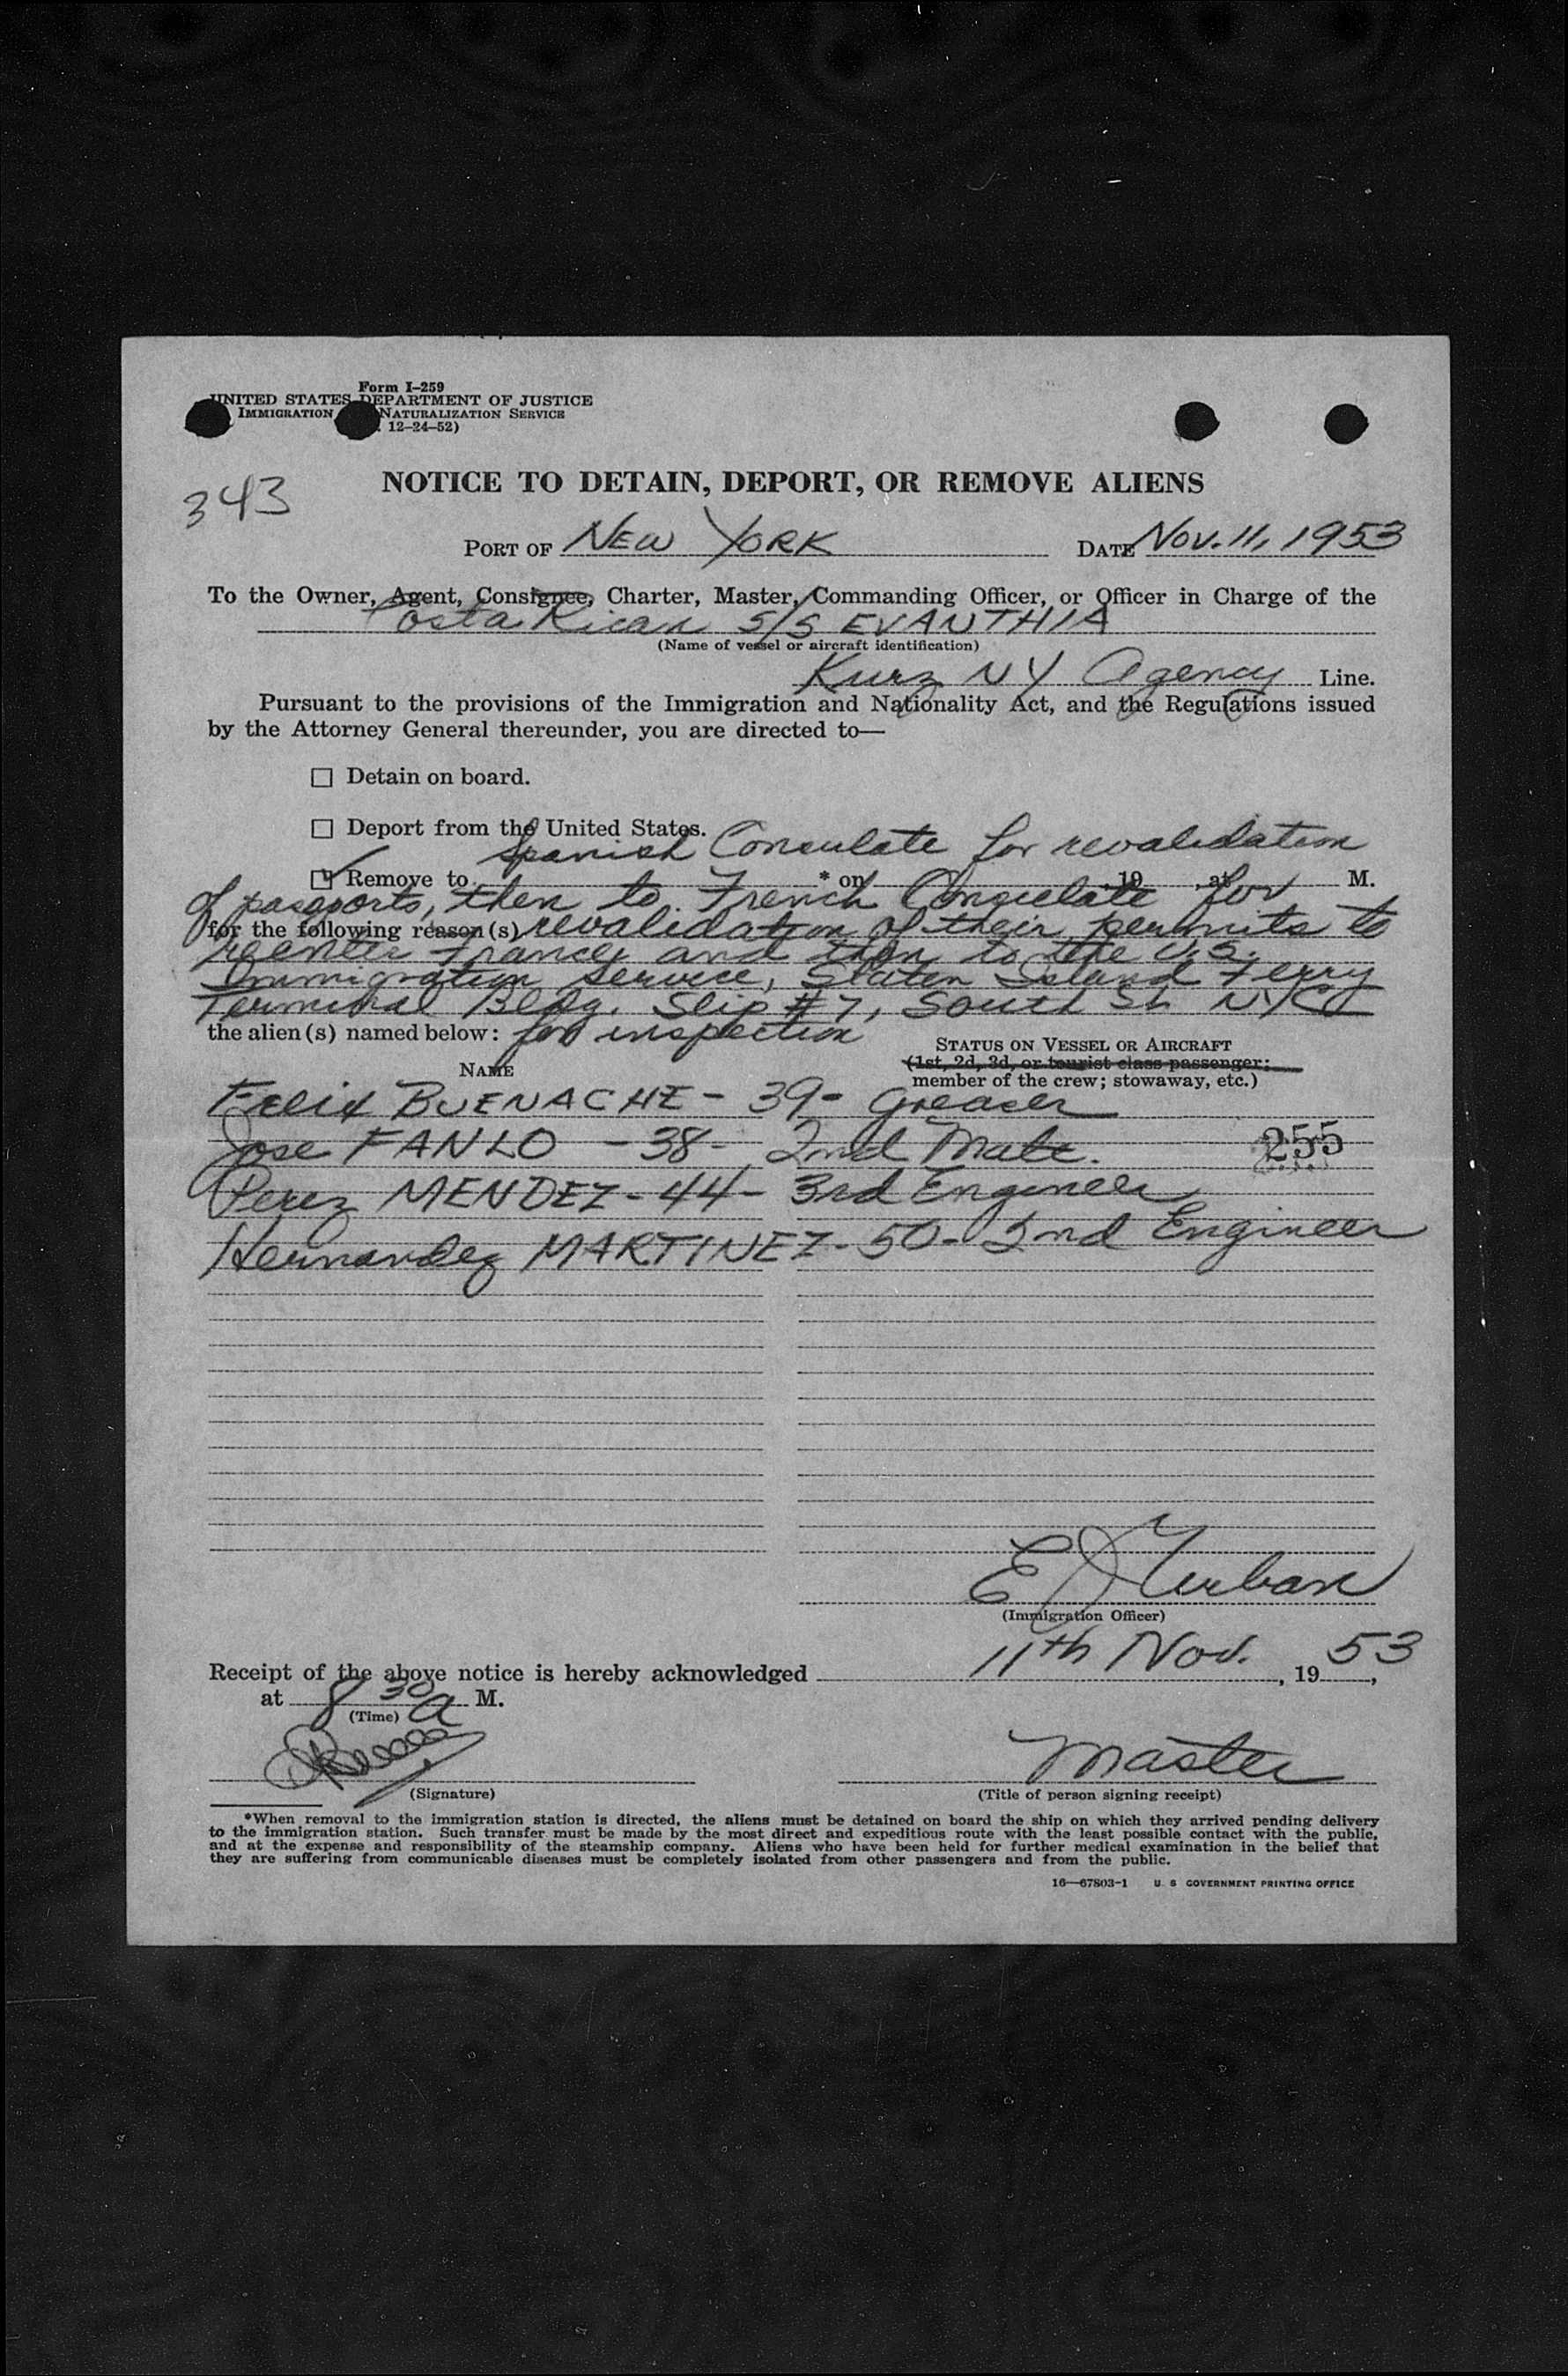 Form I-259
UNITED STATES DEPARTMENT OF JUSTICE
IMMIGRATION NATURALIZATION SERVICE
12-24-52)
343
NOTICE TO DETAIN, DEPORT, OR REMOVE ALIENS
PORT OF NEW YORK DATE Nov. 11, 1953
To the Owner, Agent, Consignee, Charter, Master, Commanding Officer, or Officer in Charge of the
Costa Rican S/S EVANTHIA
(Name of vessel or aircraft identification)
Kurz NY Agency Line.
Pursuant to the provisions of the Immigration and Nationality Act, and the Regulations issued
by the Attorney General thereunder, you are directed to—
☐ Detain on board.
☐ Deport from the United States.
Spanish Consulate for revalidation
☑ Remove to * on , 19 , at M.
of passports, then to French Consulate for
for the following reason(s) revalidation of their permits to
reenter France, and then to the U.S.
Immigration Service, Staten Island Ferry
Terminal Bldg. Slip #7, South St. NYC
the alien(s) named below: for inspection
STATUS ON VESSEL OR AIRCRAFT
NAME (1st, 2d, 3d, or tourist class passenger;
member of the crew; stowaway, etc.)
Felix BUENACHE - 39 - Greaser
Jose FANLO - 38 - 2nd Mate.
255
Perez MENDEZ - 44 - 3rd Engineer
Hernandez MARTINEZ - 50 - 2nd Engineer
(Immigration Officer)
Receipt of the above notice is hereby acknowledged 11th Nov. , 1953,
at 8 30 a M.
(Time)
Master
(Signature) (Title of person signing receipt)
*When removal to the immigration station is directed, the aliens must be detained on board the ship on which they arrived pending delivery
to the immigration station. Such transfer must be made by the most direct and expeditious route with the least possible contact with the public,
and at the expense and responsibility of the steamship company. Aliens who have been held for further medical examination in the belief that
they are suffering from communicable diseases must be completely isolated from other passengers and from the public.
16—67803-1 U. S. GOVERNMENT PRINTING OFFICE